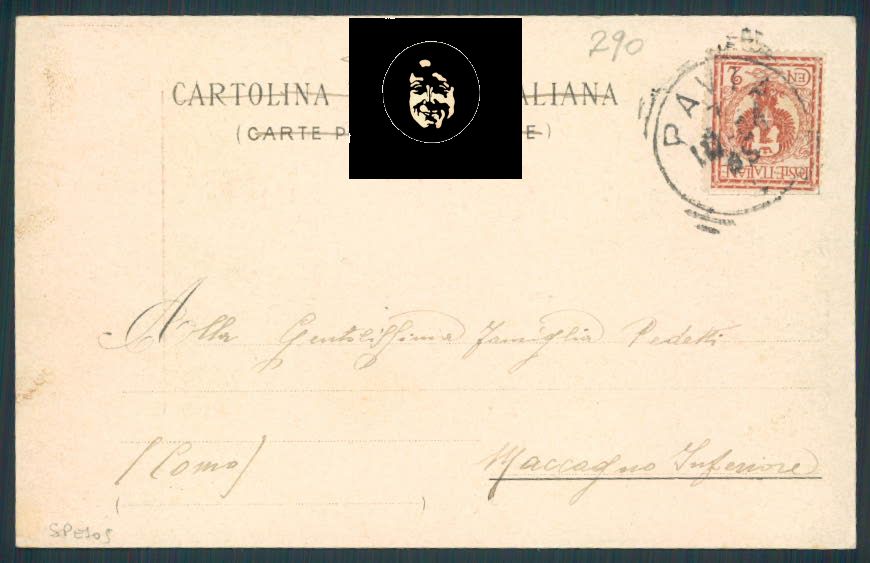 290
CARTOLINA ALIANA
(CARTE P E)
2
CEN
POSTE-ITALIANE
PAVIA
Alla Gentilissima Famiglia Pedetti
(Como) Maccagno Inferiore
SPE105